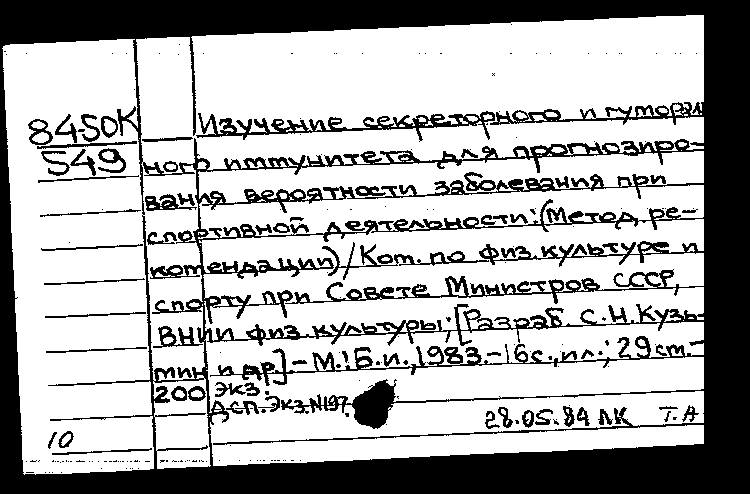 84-50К Изучение секреторного и гумораль
549 ного иммунитета для прогнозиро-
вания вероятности заболевания при
спортивной деятельности: (Метод. ре-
комендации) / Ком. по физ. культуре и
спорту при Совете Министров СССР,
ВНИИ физ. культуры; [Разраб. С.Н. Кузь-
мин и др.]. - М.: Б.и., 1983. - 16 с., ил.; 29 см. -
200 экз.
ДСП. Экз. N197.
28.05.84 ЛК Т.А
10